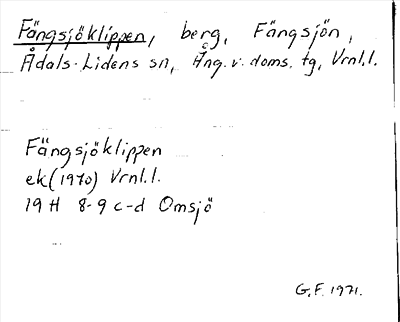 Fängsjöklippen, berg, Fängsjön,
Ådals-Lidens sn, Ång. v. doms. tg, Vrnl.l.
Fängsjöklippen
ek (1970) Vrnl.l.
19 H 8-9 c-d Omsjö
G.F. 1971.